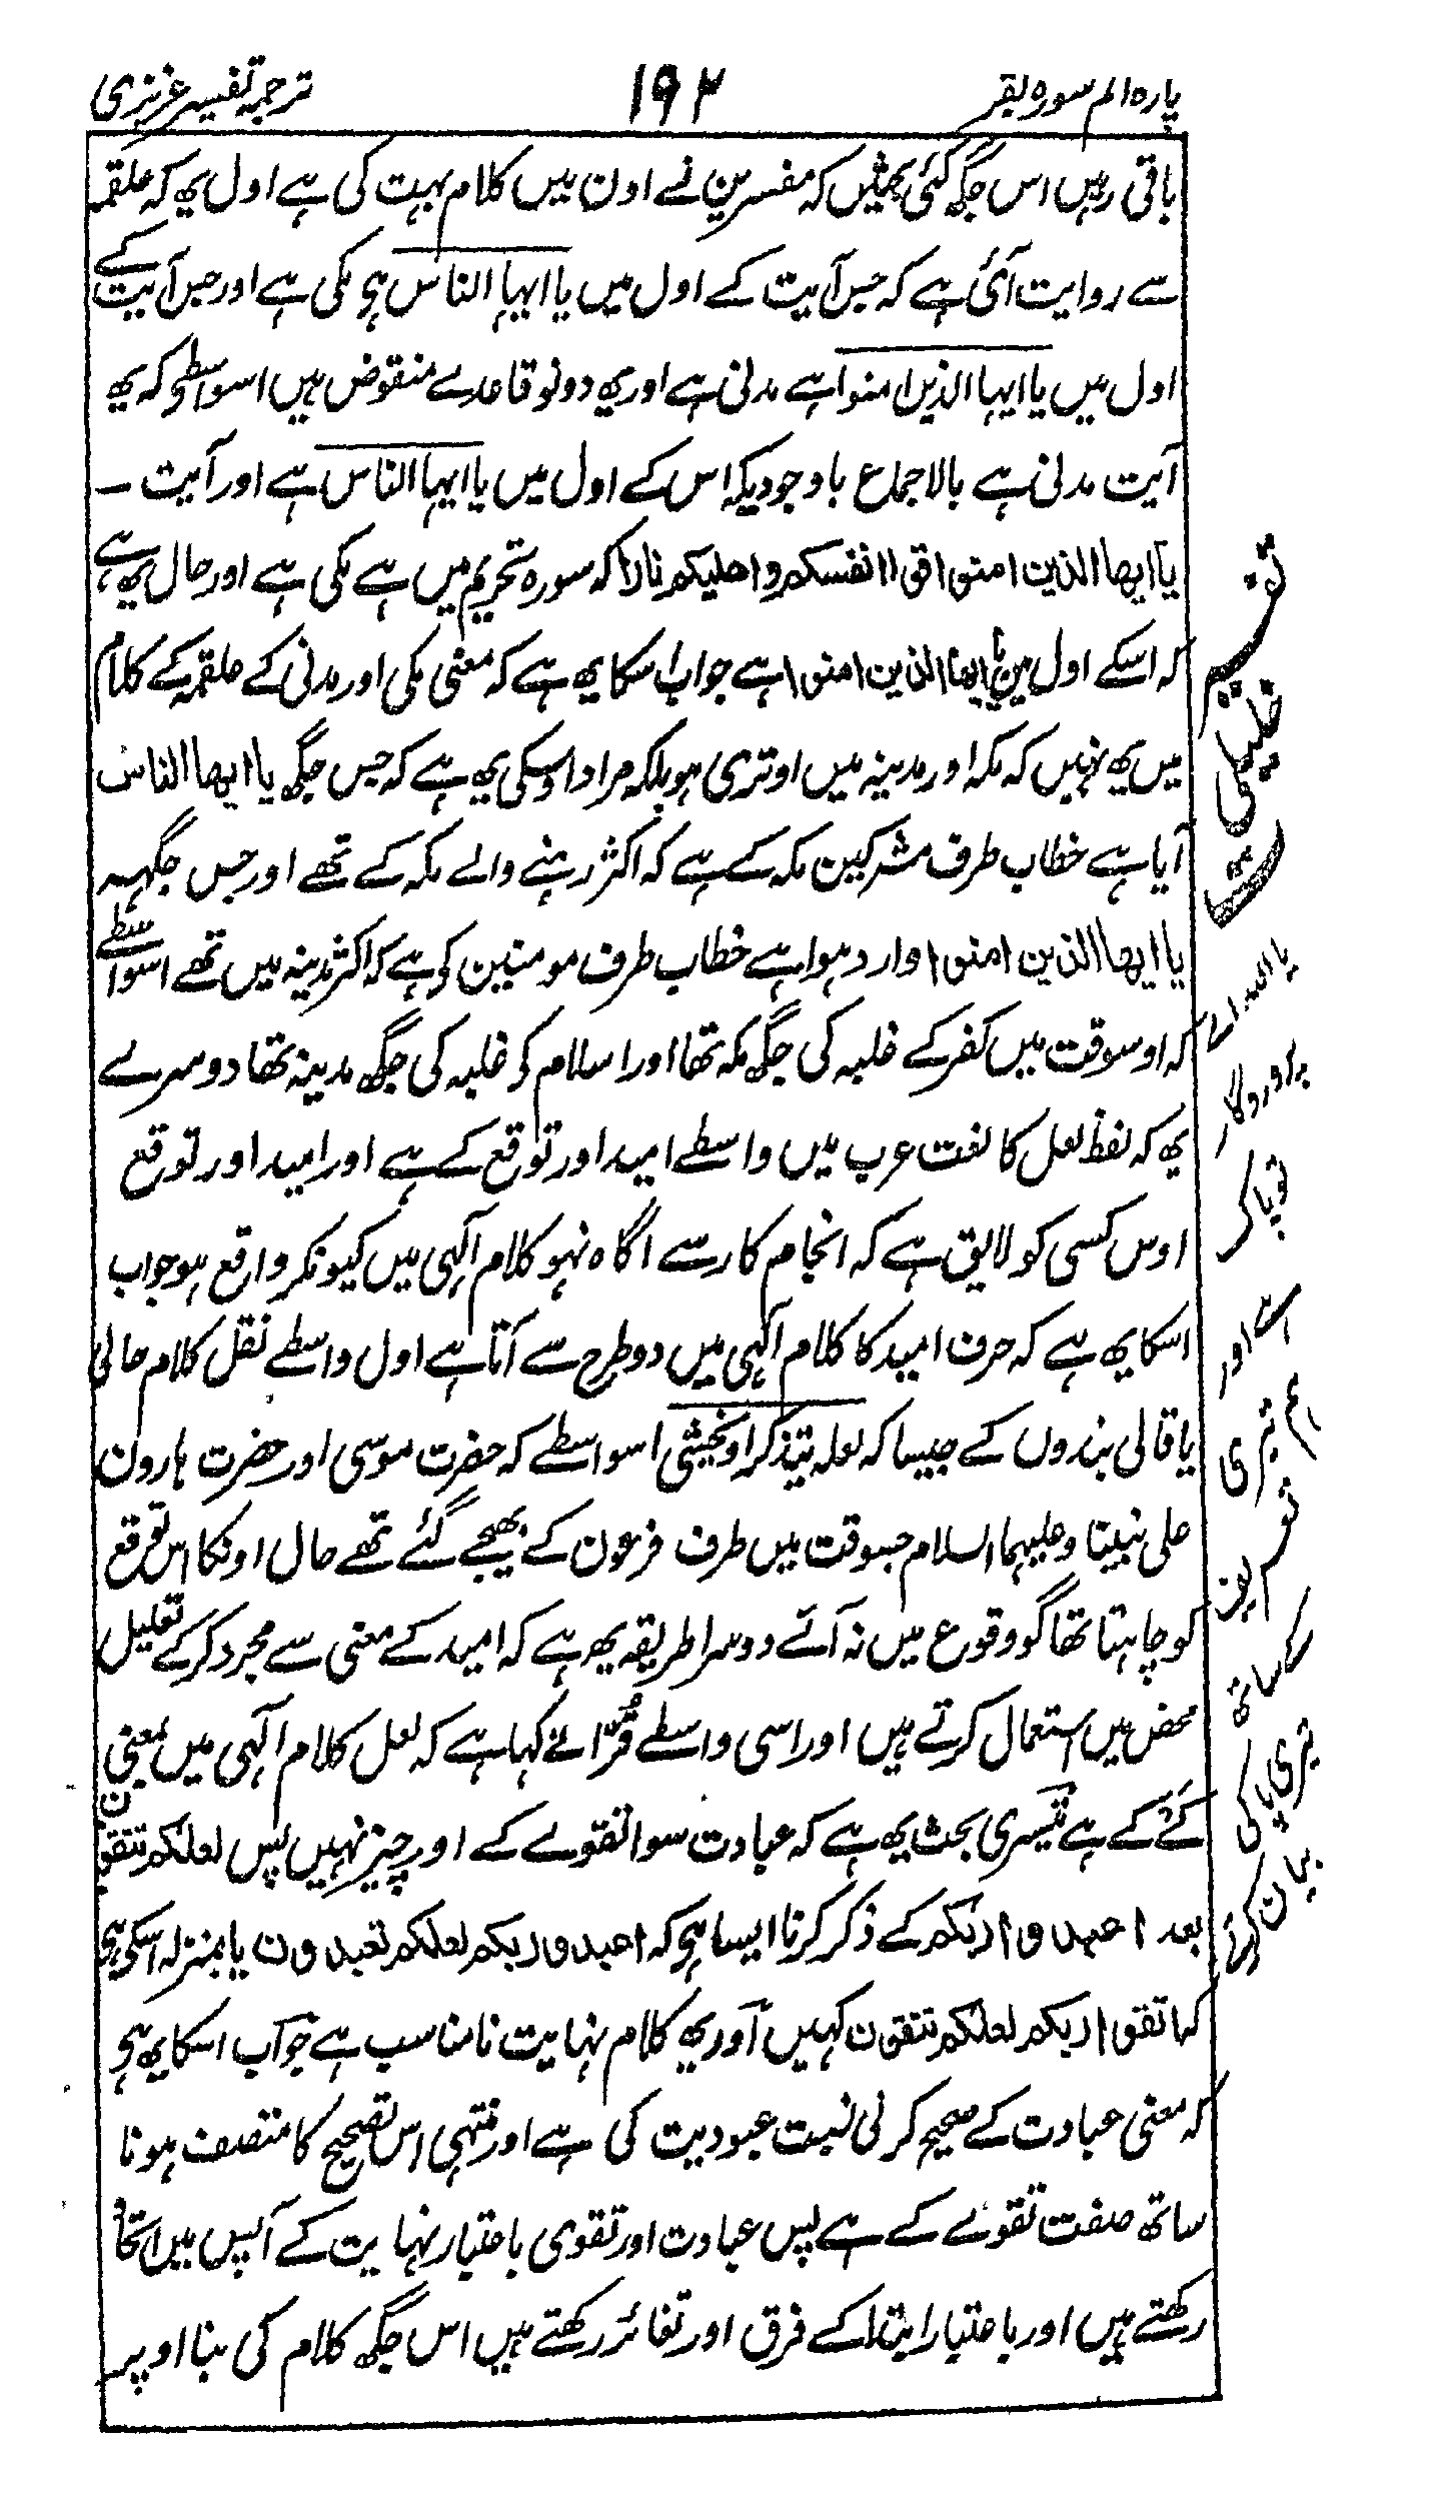 پارہ الم سورہ بقر
۱۹۲
ترجمہ تفسیر عزیزی
باقی رہیں اس جگہ کئی بحثیں کہ مفسرین نے اون میں کلام بہت کی ہے اول یہ کہ علقمہ
سے روایت آئی ہے کہ جس آیت کے اول میں یا ایہا الناس ہی مکی ہے اور جس آیت کے
اول میں یا ایہا الذین امنوا ہے مدنی ہے اور یہ دونو قاعدے منقوض ہیں اسواسطی کہ یہ
آیت مدنی ہے بالاجماع باوجودیکہ اس کے اول میں یا ایہا الناس ہے اور آیت
یا ایھا الذین امنوا قوا انفسکم واھلیکم نارا کہ سورہ تحریم میں ہے مکی ہے اور حال یہ ہے
کہ اسکے اول میں یا ایھا الذین امنوا ہے جواب اسکا یہ ہے کہ معنی مکی اور مدنی کے علقمہ کے کلام
میں یہ نہیں کہ مکہ اور مدینہ میں اوتری ہو بلکہ مراد اوسکی یہ ہے کہ جس جگہ یا ایھا الناس
آیا ہے خطاب طرف مشرکین مکہ کے ہے کہ اکثر رہنے والے مکہ کے تھے اور جس جگہہ
یا ایھا الذین امنوا وارد ہوا ہے خطاب طرف مومنین کی ہے کہ اکثر مدینہ میں تھے اسواسطے
کہ اوسوقت میں کفر کے غلبہ کی جگہ مکہ تھا اور اسلام کی غلبہ کی جگہ مدینہ تھا دوسرے
یہ کہ لفظ لعل کا لغت عرب میں واسطے امید اور توقع کے ہے اور امید اور توقع
اوس کسی کو لایق ہے کہ انجام کار سے اگاہ نہو کلام الٰہی میں کیونکر واقع ہو جواب
اسکا یہ ہے کہ حرف امید کا کلام الٰہی میں دو طرح سے آتا ہے اول واسطے نقل کلام حالی
یا قالی بندوں کے جیسا کہ لعلہ یتذکر او یخشی اسواسطے کہ حضرت موسی اور حضرت ہارون
علی نبینا وعلیہما السلام جسوقت میں طرف فرعون کے بھیجے گئے تھے حال اونکا اس توقع
کو چاہتا تھا گو وقوع میں نہ آئے دوسرا طریقہ یہ ہے کہ امید کے معنی سے مجرد کر کے تعلیل
محض میں استعمال کرتے ہیں اور اسی واسطے فرّا نے کہا ہے کہ لعل کلام الٰہی میں بمعنی
کَے کے ہے تیسری بحث یہ ہے کہ عبادت سوا تقوے کے اور چیز نہیں پس لعلکم تتقون
بعد اعبدوا ربکم کے ذکر کرنا ایسا ہی کہ اعبدوا ربکم لعلکم تعبدون یا بمنزلہ اسکی ہی
کہ اتقوا ربکم لعلکم تتقون کہیں اور یہ کلام نہایت نامناسب ہے جواب اسکا یہ ہی
کہ معنی عبادت کے صحیح کرنی نسبت عبودیت کی ہے اور منتہی اس تصحیح کا متصف ہونا
ساتھ صفت تقوے کے ہے پس عبادت اور تقوی باعتبار نہایت کے آپس میں اتحاد
رکھتے ہیں اور باعتبار ابتدا کے فرق اور تغائر رکھتے ہیں اس جگہ کلام کی بنا اوپر